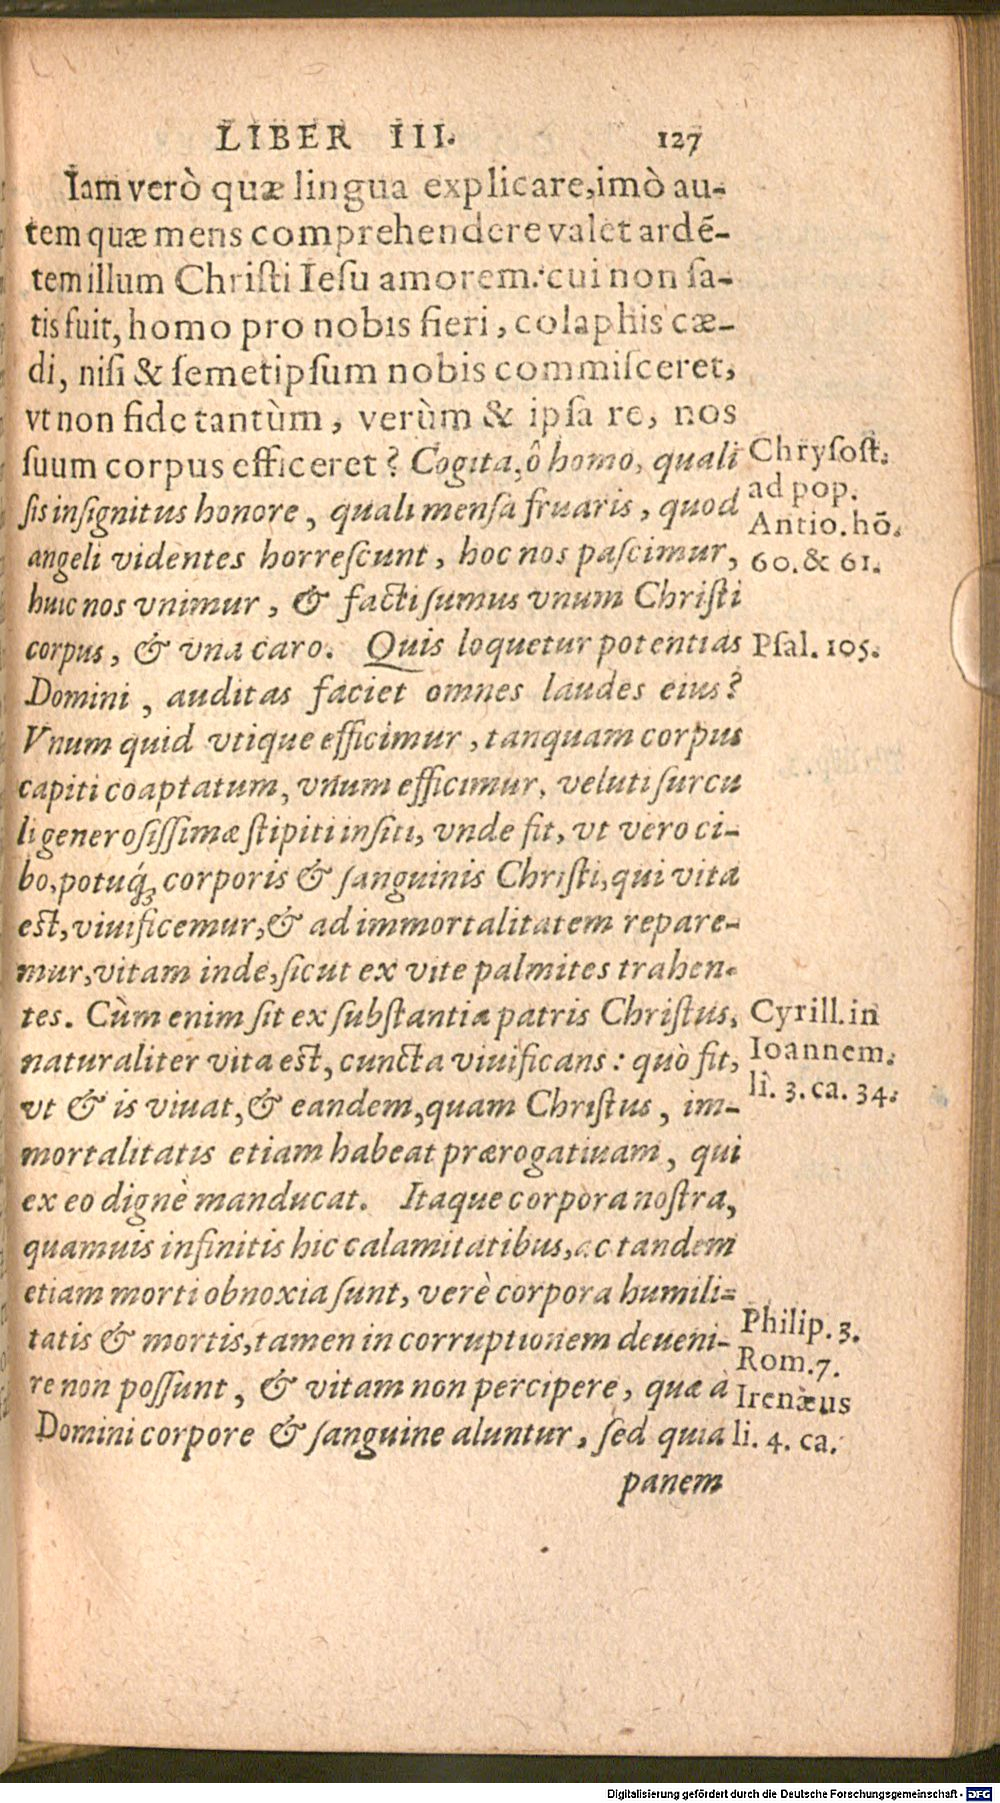 LIBER III. 127
Iam verò quæ lingua explicare, imò au-
tem quæ mens comprehendere valet ardē-
tem illum Christi Iesu amorem: cui non sa-
tis fuit, homo pro nobis fieri, colaphis cæ-
di, nisi & semetipsum nobis commisceret,
vt non fide tantùm, verùm & ipsa re, nos
suum corpus efficeret? Cogita, ô homo, quali
sis insignitus honore, quali mensa fruaris, quod
angeli videntes horrescunt, hoc nos pascimur,
huic nos vnimur, & facti sumus vnum Christi
corpus, & vna caro. Quis loquetur potentias
Domini, auditas faciet omnes laudes eius?
Vnum quid vtique efficimur, tanquam corpus
capiti coaptatum, vnum efficimur, veluti surcu
li generosissimæ stipiti insiti, vnde fit, vt vero ci-
bo, potuq́; corporis & sanguinis Christi, qui vita
est, viuificemur, & ad immortalitatem repare-
mur, vitam inde, sicut ex vite palmites trahen-
tes. Cùm enim sit ex substantia patris Christus,
naturaliter vita est, cuncta viuificans: quò fit,
vt & is viuat, & eandem, quam Christus, im-
mortalitatis etiam habeat prærogatiuam, qui
ex eo dignè manducat. Itaque corpora nostra,
quamuis infinitis hic calamitatibus, ac tandem
etiam morti obnoxia sunt, verè corpora humili-
tatis & mortis, tamen in corruptionem deueni-
re non possunt, & vitam non percipere, quæ a
Domini corpore & sanguine aluntur, sed quia
panem
Chrysost.
ad pop.
Antio. hō.
60. & 61.
Psal. 105.
Cyrill. in
Ioannem.
li. 3. ca. 34.
Philip. 3.
Rom. 7.
Irenæus
li. 4. ca.
Digitalisierung gefördert durch die Deutsche Forschungsgemeinschaft - DFG